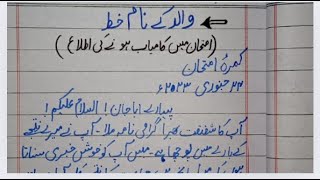 والد کے نام خط
(امتحان میں کامیاب ہونے کی اطلاع)
کمرۂ امتحان
۲۲ جنوری ۲۰۲۳ء
پیارے ابا جان! السلام علیکم!
آپ کا شفقت بھرا گرامی نامہ ملا۔ آپ نے میرے نتیجے
کے بارے میں پوچھا ہے۔ میں آپ کو خوش خبری سناتا